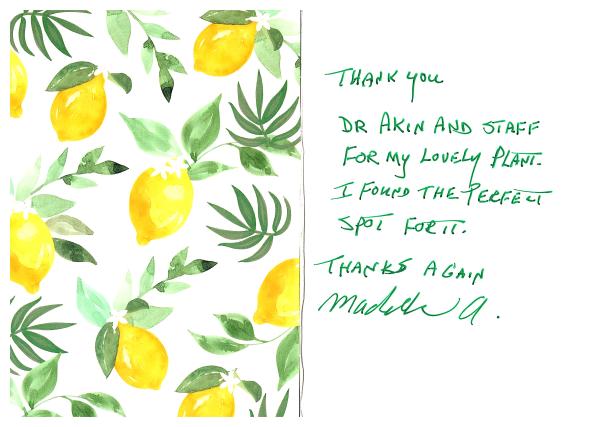 THANK you
DR AKIN AND STAFF
FOR My LOVELY PLANT.
I FOUND THE PERFECT
SPOT FOR IT.
THANKS AGAIN
A.